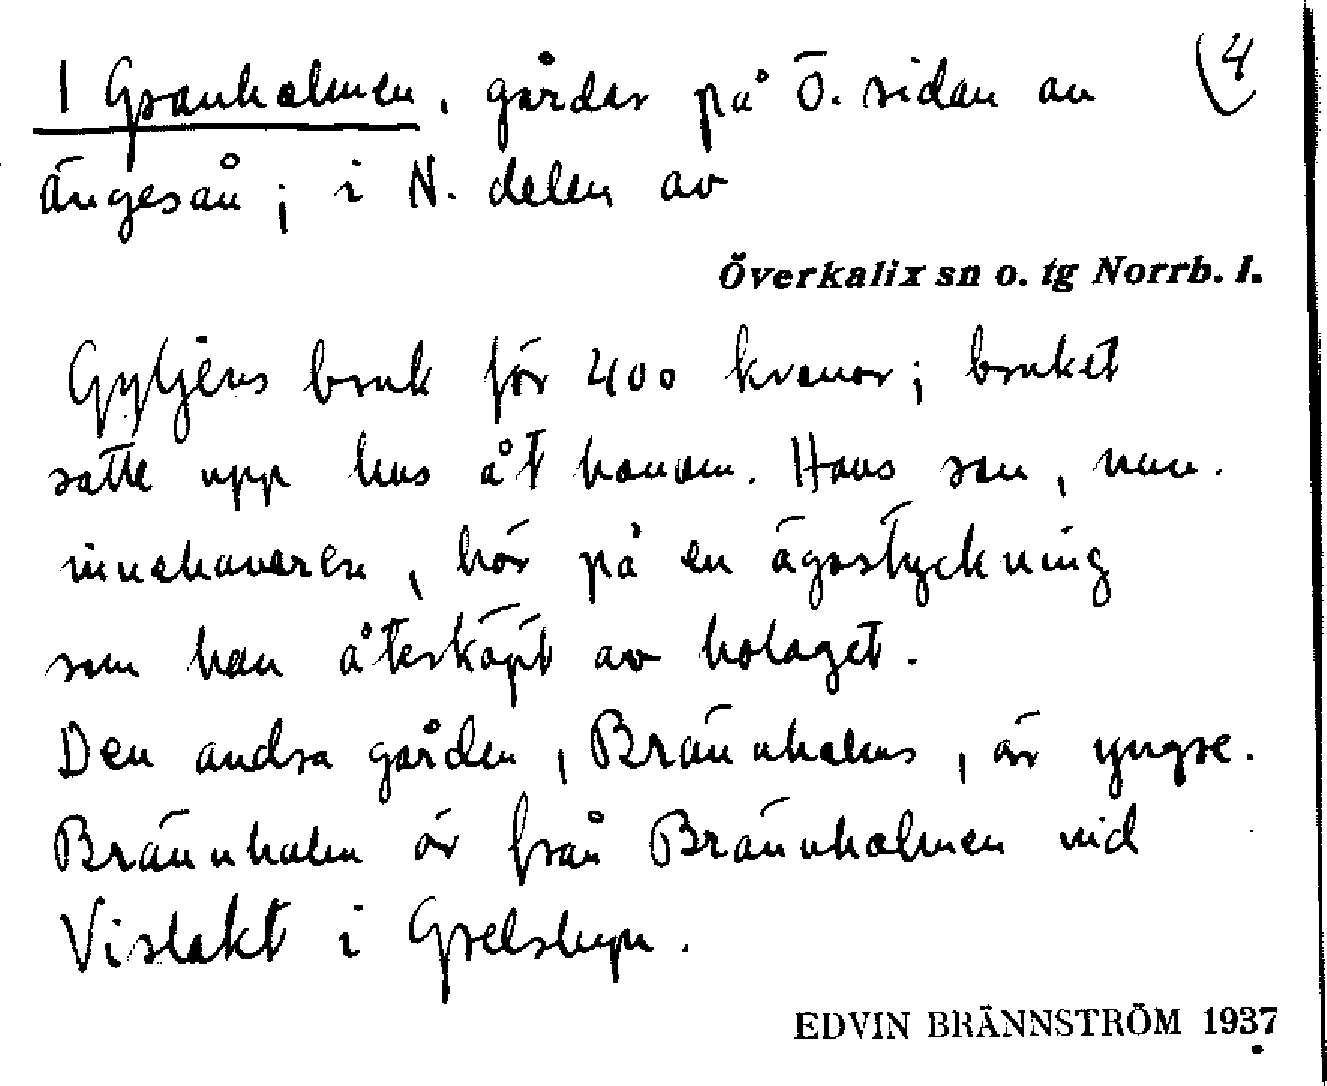 1 Granholmen, gårdar på Ö. sidan av
Ängesån; i N. delen av
4
Överkalix sn o. tg Norrb. l.
Gyljens bruk för 400 kronor; bruket
satte upp hus åt honom. Hans son, nuv.
innehavaren, bor på en ägostyckning
som han återköpt av bolaget.
Den andra gården, Brännholms, är yngre.
Brännholm är från Brännholmen vid
Vislakt i Grelsbyn.
EDVIN BRÄNNSTRÖM 1937